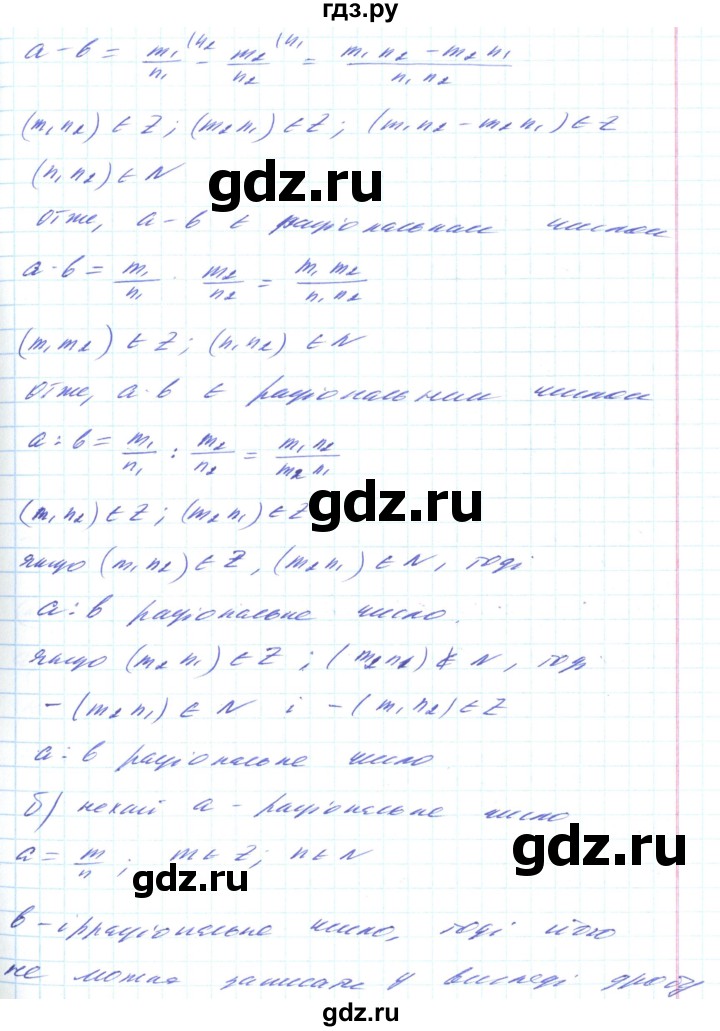 гдз.ру
a - b = m₁/n₁ (n₂ - m₂/n₂ (n₁ = (m₁n₂ - m₂n₁)/(n₁n₂)
(m₁n₂) ∈ Z; (m₂n₁) ∈ Z; (m₁n₂ - m₂n₁) ∈ Z
(n₁n₂) ∈ N
gdz.ru
отже, a - b є раціональним числом
a · b = m₁/n₁ · m₂/n₂ = (m₁m₂)/(n₁n₂)
(m₁m₂) ∈ Z; (n₁n₂) ∈ N
отже, a·b є раціональним числом
a : b = m₁/n₁ : m₂/n₂ = (m₁n₂)/(m₂n₁)
(m₁n₂) ∈ Z; (m₂n₁) ∈ Z
gdz.ru
якщо (m₁n₂) ∈ Z, (m₂n₁) ∈ N, тоді
a : b раціональне число.
якщо (m₂n₁) ∈ Z; (m₂n₂) ∉ N, тоді
-(m₂n₁) ∈ N і -(m₁n₂) ∈ Z
a : b раціональне число
б) нехай a - раціональне число
gdz.ru
a = m/n; m ∈ Z; n ∈ N
gdz.ru
b - ірраціональне число, тоді його
не можна записати у вигляді дробу
gdz.ru